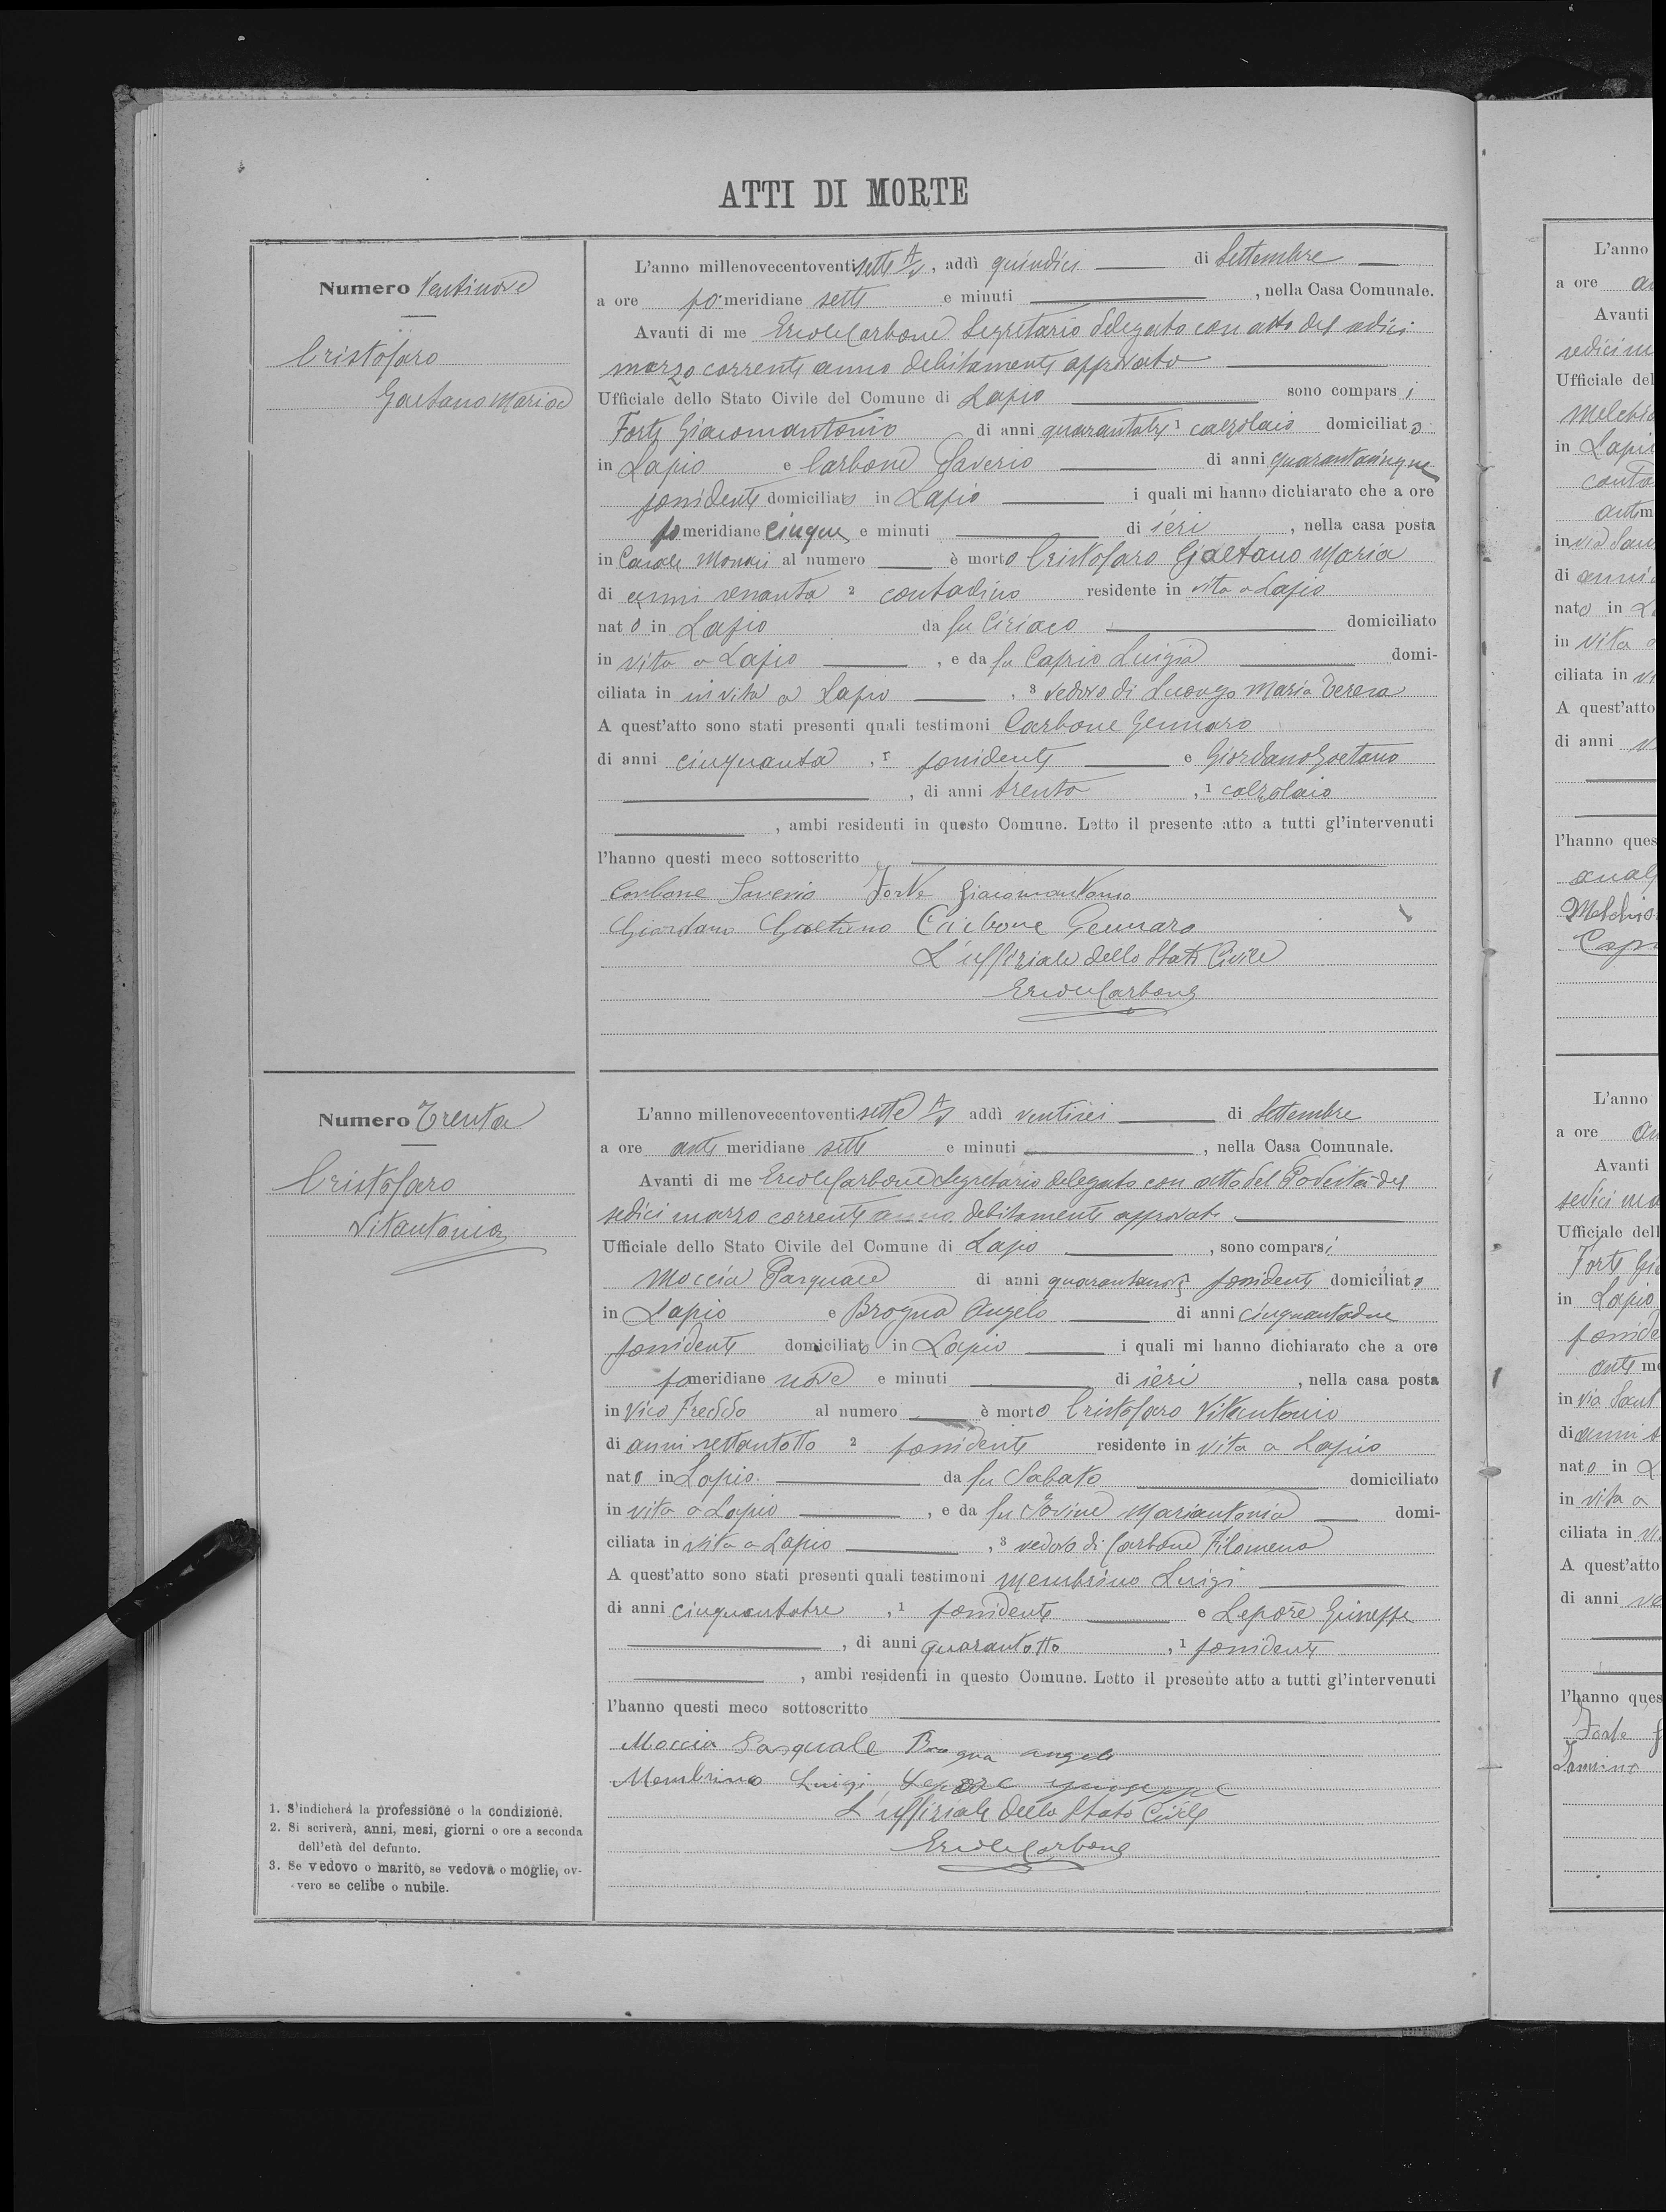 ATTI DI MORTE
Numero Ventinove
Cristofaro
Gaetano Maria
L'anno millenovecentoventisette A/V, addì quindici di Settembre
a ore po meridiane sette e minuti , nella Casa Comunale.
Avanti di me Ercole Carbone Segretario delegato con atto del sedici
marzo corrente anno debitamente approvato
Ufficiale dello Stato Civile del Comune di Lapio sono comparsi
Forte Giacomantonio di anni quarantatre 1 calzolaio domiciliato
in Lapio e Carbone Saverio di anni quarantacinque
possidente domiciliato in Lapio i quali mi hanno dichiarato che a ore
po meridiane cinque e minuti di ieri , nella casa posta
in Casale al numero è morto Cristofaro Gaetano Maria
di anni 2 contadino residente in vita a Lapio
nato in Lapio da fu Ciriaco domiciliato
in vita a Lapio , e da fu Caprio Luigia domi-
ciliata in in vita a Lapio , 3 vedovo di Luongo Maria Teresa
A quest'atto sono stati presenti quali testimoni Carbone Gennaro
di anni cinquanta , 1 possidente e Giordano Gaetano
, di anni trenta , 1 calzolaio
, ambi residenti in questo Comune. Letto il presente atto a tutti gl'intervenuti
l'hanno questi meco sottoscritto
Carbone Saverio Forte Giacomantonio
Giordano Gaetano Carbone Gennaro
L'uffiziale dello Stato Civile
Ercole Carbone
Numero Trenta
Cristofaro
Vitantonio
L'anno millenovecentoventisette A/V addì ventisei di Settembre
a ore anti meridiane sette e minuti , nella Casa Comunale.
Avanti di me Ercole Carbone Segretario delegato con atto del Podestà del
sedici marzo corrente anno debitamente approvato
Ufficiale dello Stato Civile del Comune di Lapio , sono comparsi
Moccia Pasquale di anni quarantanove possidente domiciliato
in Lapio e Brogna Angelo di anni cinquantadue
possidente domiciliato in Lapio i quali mi hanno dichiarato che a ore
po meridiane nove e minuti di ieri , nella casa posta
in Vico Freddo al numero è morto Cristofaro Vitantonio
di anni settantotto 2 possidente residente in vita a Lapio
nato in Lapio da fu Sabato domiciliato
in vita a Lapio , e da fu Iovine Mariantonia domi-
ciliata in vita a Lapio , 3 vedovo di Carbone Filomena
A quest'atto sono stati presenti quali testimoni Membrino Luigi
di anni cinquantatre , 1 possidente e Lepore Giuseppe
, di anni quarantotto , 1 possidente
, ambi residenti in questo Comune. Letto il presente atto a tutti gl'intervenuti
l'hanno questi meco sottoscritto
Moccia Pasquale Brogna angelo
Membrino Luigi Lepore giuseppe
L'uffiziale dello Stato Civile
Ercole Carbone
1. S'indicherà la professione o la condizione.
2. Si scriverà, anni, mesi, giorni o ore a seconda
dell'età del defunto.
3. Se vedovo o marito, se vedova o moglie, ov-
vero se celibe o nubile.
L'anno
a ore
Avanti
Ufficiale del
in Lapio
in via
di anni
nato in
in vita a
ciliata in
A quest'atto
di anni
l'hanno ques
L'anno
a ore
Avanti
sedici
Ufficiale dell
Forte
in Lapio
anti
in Via
di anni
nato in
in vita a
ciliata in
A quest'atto
di anni
l'hanno ques
Forte